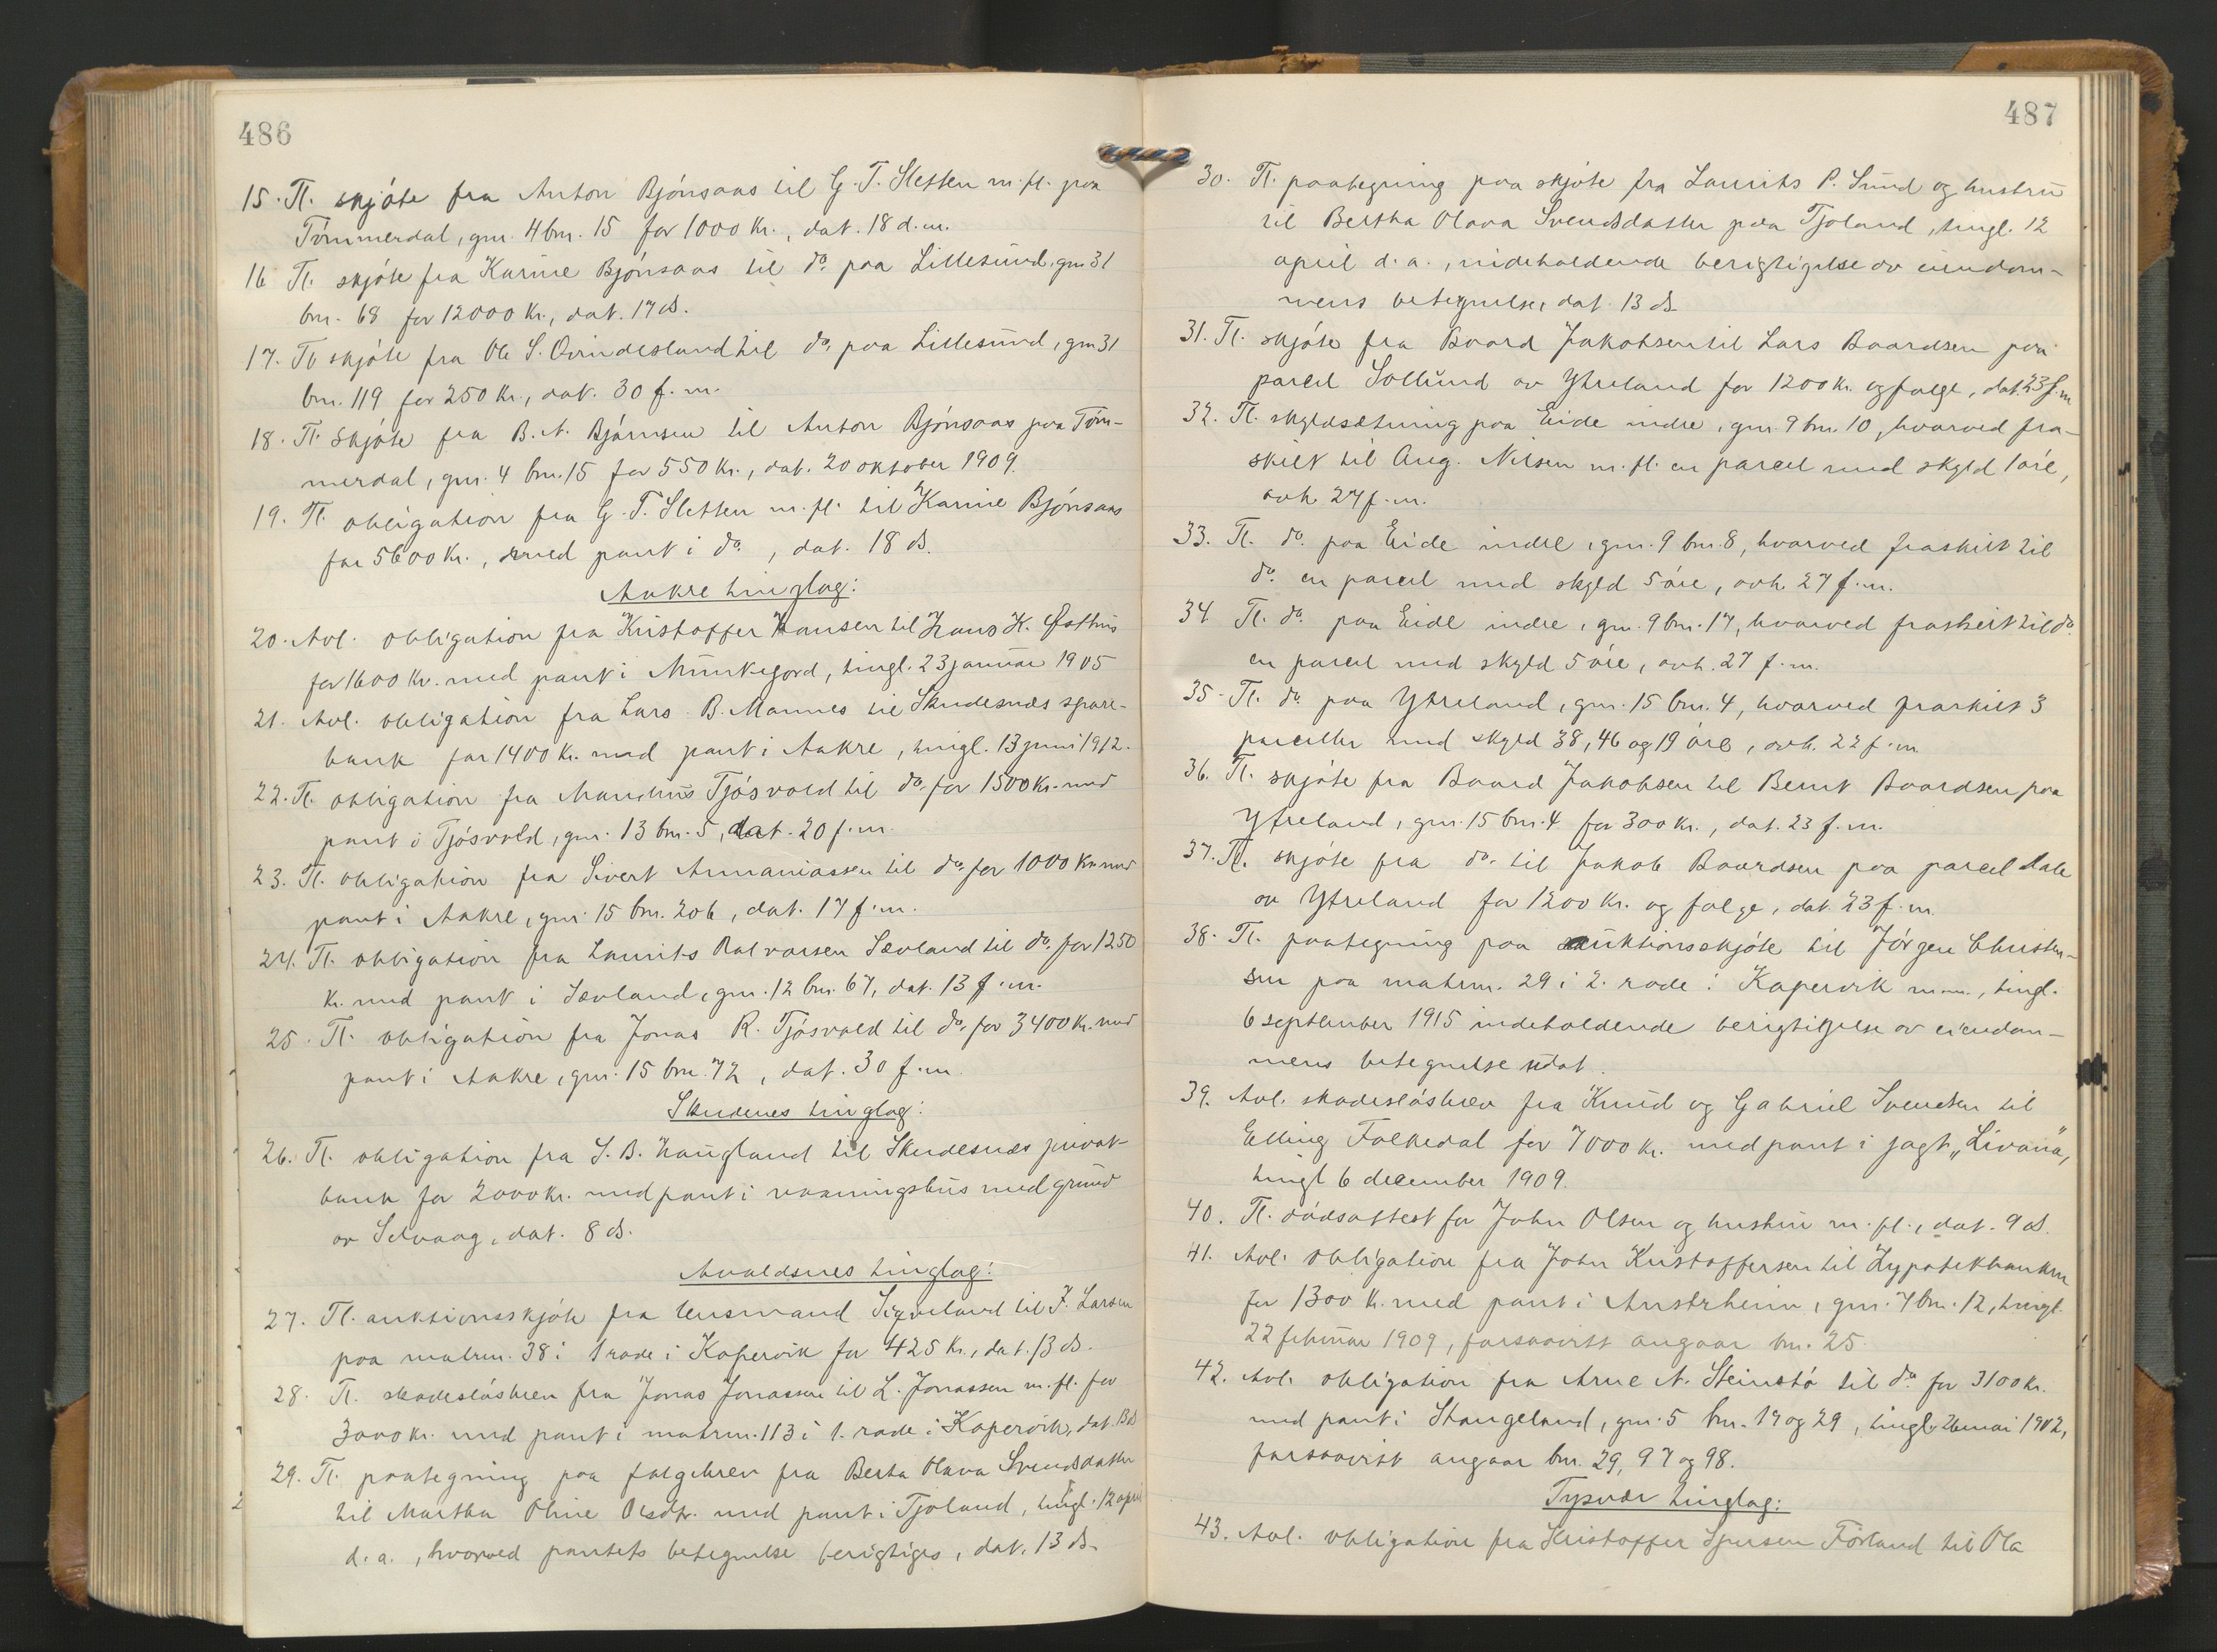 486
15. Tl. skjøte fra Anton Bjónsaas til G. T. Sletten m. fl. paa
Tömmerdal, gnr. 4 bnr. 15 for 1000 kr., dat. 18 d. m.
16 Tl. skjóte fra Karine Bjónsaas til do. paa Lillesund, gnr 31
bnr. 68 for 12000 kr., dat. 17 ds.
17. Tl. skjóte fra Ole S. Qvindesland til do. paa Lillesund, gnr 31
bnr. 119 for 250 kr., dat. 30 f. m.
18. Tl. Skjóte fra B. A. Bjórnsen til Anton Bjónsaas paa Töm-
merdal, gnr. 4 bnr. 15 for 550 kr., dat. 20 oktober 1909.
19. Tl. obligation fra G. T. Sletten m. fl. til Karine Bjónsaas
for 5600 kr., med pant i do., dat. 18 ds.
Aakre tinglag:
20. Avl. obligation fra Kristoffer Hansen til Hans K. Østhus
for 1600 kr. med pant i Munkejord, tingl. 23 januar 1905
21. Avl. obligation fra Lars B. Mannes til Skudesnæs spare-
bank for 1400 kr. med pant i Aakre, tingl. 13 juni 1912.
22. Tl. obligation fra Mandius Tjósvold til do. for 1500 kr. med
pant i Tjósvold, gnr. 13 bnr. 5, dat. 20 f. m.
23. Tl. obligation fra Sivert Annaniassen til do. for 1000 kr. med
pant i Aakre, gnr. 15 bnr. 206, dat. 17 f. m.
24. Tl. obligation fra Laurits Salvorsen Sævland til do. for 1250
kr. med pant i Sævland, gnr. 12 bnr. 67, dat. 13 f. m.
25. Tl. obligation fra Jonas R. Tjósvold til do. for 3400 kr. med
pant i Aakre, gnr. 15 bnr. 72, dat. 30 f. m.
Skudenes tinglag:
26. Tl. obligation fra S. B. Haugland til Skudesnæs privat-
bank for 2000 kr. med pant i vaaningshus med grund
av Selvaag, dat. 8 ds.
Avaldsnes tinglag:
27. Tl. auktionsskjóte fra lensmand Sigveland til F. Larsen
paa matrnr. 38 i 1 rode i Kopervik for 425 kr., dat. 13 ds.
28. Tl. skadeslósbrev fra Jonas Jonassen til L. Jonassen m. fl. for
3000 kr. med pant i matrnr. 113 i 1. rode i Kopervik, dat. 13 ds
29. Tl. paategning paa folgebrev fra Berta Olava Svendsdatter
til Martha Oline Olsdtr. med pant i Tjoland, tingl. 12 april
d. a., hvorved pantets betegnelse berigtiges, dat. 13 ds.
487
30. Tl. paategning paa skjóte fra Laurits P. Sund og hustru
til Bertha Olava Svendsdatter paa Tjoland, tingl. 12
april d. a., indeholdende berigtigelse av eiendom-
mens betegnelse, dat. 13 ds.
31. Tl. skjóte fra Baard Jakobsen til Lars Baardsen paa
parcel Sollund av Ytreland for 1200 kr. og folge, dat. 23 f. m
32. Tl. skyldsætning paa Eide indre, gnr. 9 bnr. 10, hvorved fra-
skilt til Aug. Nilsen m. fl. en parcel med skyld 1 óre,
avh. 27 f. m.
33. Tl. do. paa Eide indre, gnr. 9 bnr. 8, hvorved fraskilt til
do. en parcel med skyld 5 óre, avh. 27 f. m.
34 Tl. do. paa Eide indre, gnr. 9 bnr. 17, hvorved fraskilt til do.
en parcel med skyld 5 óre, avh. 27 f. m.
35. Tl. do. paa Ytreland, gnr. 15 bnr. 4, hvorved fraskilt 3
parceller med skyld 38, 46 og 19 óre, avh. 22 f. m
36. Tl. skjóte fra Baard Jakobsen til Bernt Baardsen paa
Ytreland, gnr. 15 bnr. 4 for 300 kr., dat. 23 f. m.
37. Tl. skjóte fra do. til Jakob Baardsen paa parcel Dale
av Ytreland for 1200 kr. og folge, dat. 23 f. m.
38. Tl. paategning paa auktionsskjóte til Jórgen Christen-
sen paa matrnr. 29 i 2. rode i Kopervik m. m., tingl.
6 september 1915 indeholdende berigtigelse av eiendom-
mens betegnelse udat.
39. Avl. skadeslósbrev fra Knud og Gabriel Svendsen til
Elling Falkedal for 7000 kr. med pant i jagt „Livana",
tingl 6 december 1909.
40. Tl. dódsattest for John Olsen og hustru m. fl., dat. 9 ds.
41. Avl. obligation fra John Kristoffersen til Hypotekbanken
for 1300 kr. med pant i Austrheim, gnr. 7 bnr. 12, tingl.
22 februar 1909, forsaavidt angaar bnr. 25.
42. Avl. obligation fra Arne N. Steinstó til do. for 3100 kr.
med pant i Stangeland, gnr. 5 bnr. 17 og 29, tingl. 26 mai 1902,
forsaavidt angaar bnr. 29, 97 og 98.
Tysvær tinglag:
43. Avl. obligation fra Kristoffer Sjursen Förland til Ola